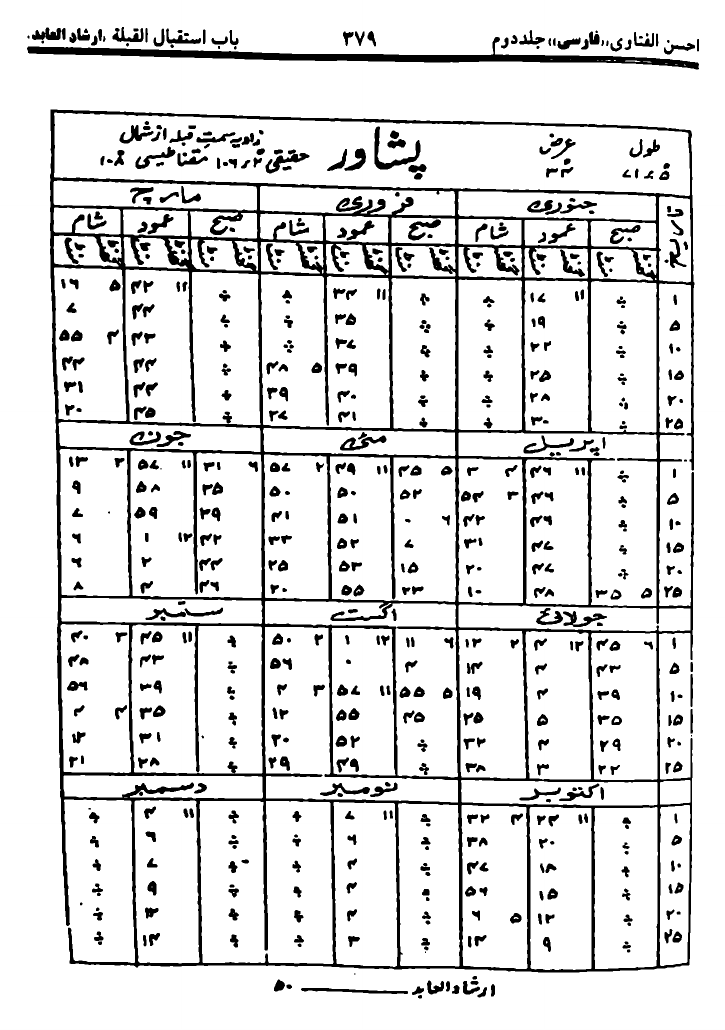 احسن الفتاوی ،،فارسی،، جلد دوم ۳۷۹ باب استقبال القبلة ،ارشاد العابد.
طول عرض پشاور زاویہ سمت قبلہ از شمال
۷۱٫۵ ۳۴ حقیقی ۱۰۶٫۲ مقناطیسی ۱۰۸
تاریخ جنوری فروری مارچ
صبح عمود شام صبح عمود شام صبح عمود شام
گھنٹہ منٹ گھنٹہ منٹ گھنٹہ منٹ گھنٹہ منٹ گھنٹہ منٹ گھنٹہ منٹ گھنٹہ منٹ گھنٹہ منٹ گھنٹہ منٹ
۱ ÷ ۱۱ ۱۷ ÷ ÷ ۱۱ ۳۴ ÷ ÷ ۱۱ ۴۲ ۵ ۱۶
۵ ÷ ۱۹ ÷ ÷ ۳۵ ÷ ÷ ۴۳ ۷
۱۰ ÷ ۲۲ ÷ ÷ ۳۷ ÷ ÷ ۴۳ ۴ ۵۵
۱۵ ÷ ۲۵ ÷ ÷ ۳۹ ۵ ۴۸ ÷ ۴۴ ۴۳
۲۰ ÷ ۲۸ ÷ ÷ ۴۰ ۳۹ ÷ ۴۴ ۳۱
۲۵ ÷ ۳۰ ÷ ÷ ۴۱ ۲۷ ÷ ۴۵ ۲۰
اپریل مئی جون
۱ ÷ ۱۱ ۴۶ ۴ ۳ ۵ ۴۵ ۱۱ ۴۹ ۲ ۵۷ ۶ ۳۱ ۱۱ ۵۷ ۲ ۱۳
۵ ÷ ۴۶ ۳ ۵۴ ۵۲ ۵۰ ۵۰ ۳۵ ۵۸ ۹
۱۰ ÷ ۴۶ ۴۲ ۶ ۰ ۵۱ ۴۱ ۳۹ ۵۹ ۷
۱۵ ÷ ۴۷ ۳۱ ۷ ۵۲ ۳۳ ۴۲ ۱۲ ۱ ۶
۲۰ ÷ ۴۷ ۲۰ ۱۵ ۵۳ ۲۵ ۴۴ ۲ ۶
۲۵ ۵ ۳۵ ۴۸ ۱۰ ۲۳ ۵۵ ۲۰ ۴۶ ۴ ۸
جولائی اگست ستمبر
۱ ۶ ۴۵ ۱۲ ۴ ۲ ۱۲ ۶ ۱۱ ۱۲ ۱ ۲ ۵۰ ÷ ۱۱ ۴۵ ۳ ۴۰
۵ ۴۳ ۴ ۱۴ ۴ ۰ ۵۶ ÷ ۴۳ ۴۸
۱۰ ۳۹ ۴ ۱۹ ۵ ۵۵ ۱۱ ۵۷ ۳ ۴ ÷ ۳۹ ۵۶
۱۵ ۳۵ ۵ ۲۵ ۴۵ ۵۵ ۱۲ ÷ ۳۵ ۴ ۴
۲۰ ۲۹ ۴ ۳۲ ÷ ۵۲ ۲۰ ÷ ۳۱ ۱۲
۲۵ ۲۲ ۳ ۳۸ ÷ ۴۹ ۲۹ ÷ ۲۸ ۲۱
اکتوبر نومبر دسمبر
۱ ÷ ۱۱ ۲۴ ۴ ۳۲ ÷ ۱۱ ۷ ÷ ÷ ۱۱ ۴ ÷
۵ ÷ ۲۰ ۳۸ ÷ ۶ ÷ ÷ ۶ ÷
۱۰ ÷ ۱۸ ۴۷ ÷ ۴ ÷ ÷ ۷ ÷
۱۵ ÷ ۱۵ ۵۶ ÷ ۴ ÷ ÷ ۹ ÷
۲۰ ÷ ۱۲ ۵ ۶ ÷ ۴ ÷ ÷ ۱۲ ÷
۲۵ ÷ ۹ ۱۴ ÷ ۳ ÷ ÷ ۱۴ ÷
ارشاد العابد ــــــــــ ۵۰